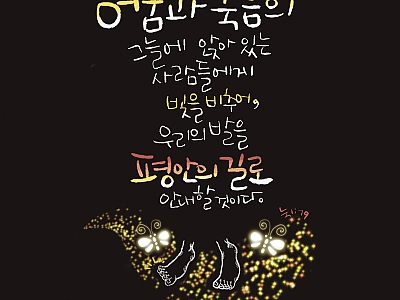 어둠과 죽음의
그늘에 앉아 있는
사람들에게
빛을 비추어,
우리의 발을
평안의 길로
안내할 것이다。
눅1:79